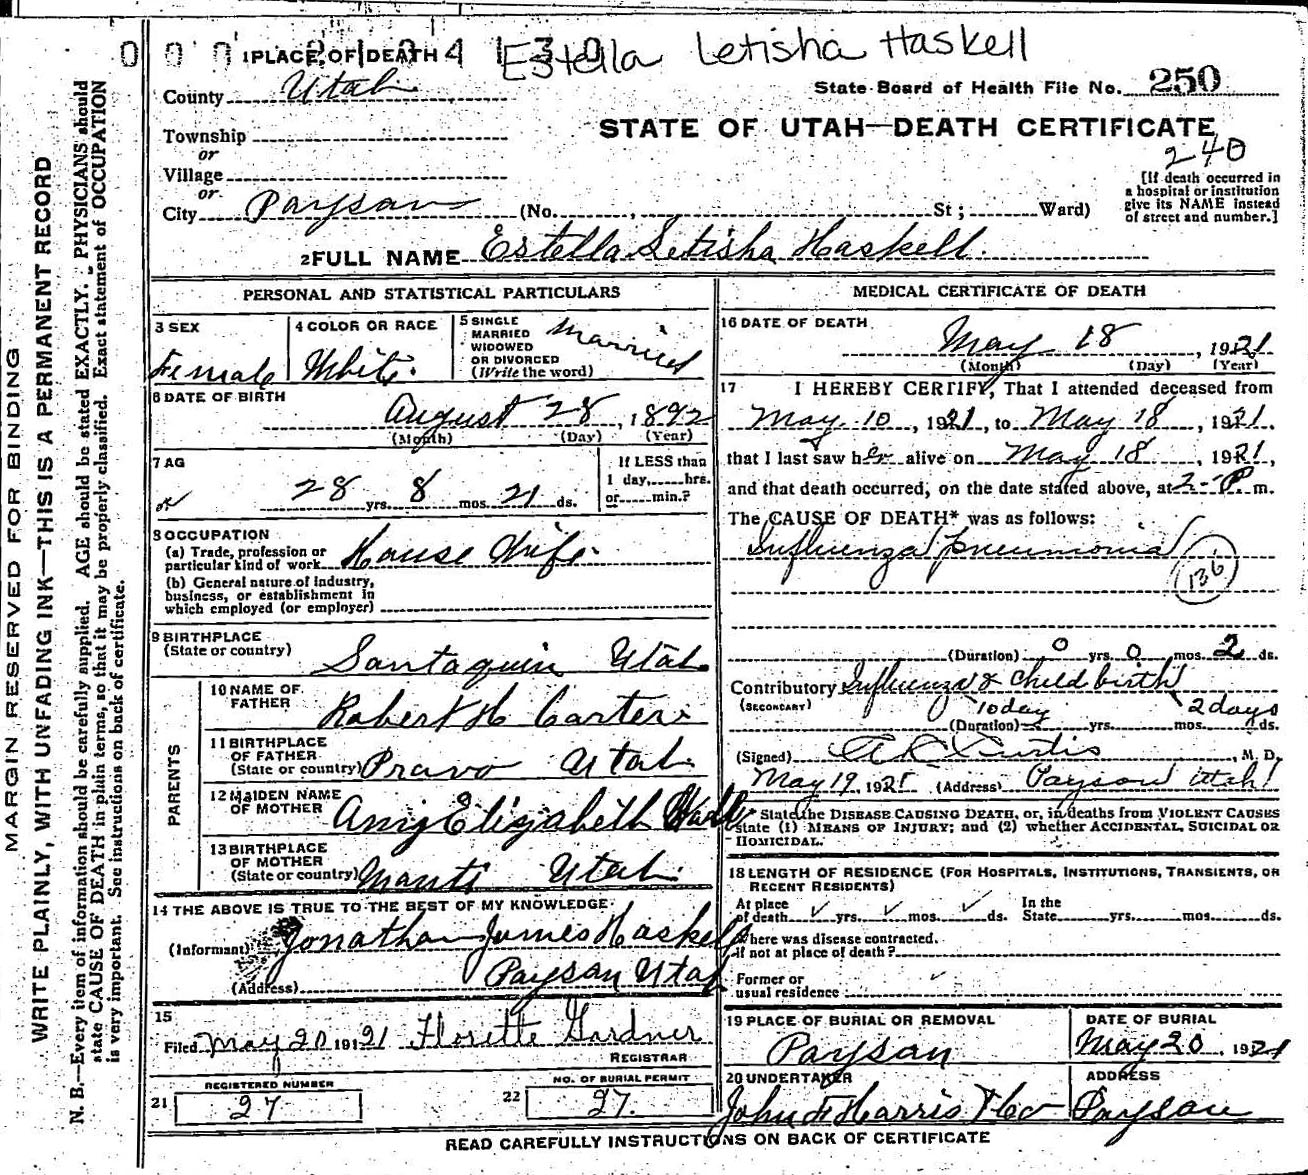 0 0 0 2 1 0 4 1 3 0
Estella Letisha Haskell
1 PLACE OF DEATH
County Utah
State Board of Health File No. 250
Township
or
STATE OF UTAH—DEATH CERTIFICATE
240
Village
or
[If death occurred in
a hospital or institution
give its NAME instead
of street and number.]
City Payson (No. , St ; Ward)
2 FULL NAME Estella Letisha Haskell.
PERSONAL AND STATISTICAL PARTICULARS
3 SEX
Female
4 COLOR OR RACE
White.
5 SINGLE
MARRIED
WIDOWED
OR DIVORCED
(Write the word)
Married
6 DATE OF BIRTH
August 28, 1892
(Month) (Day) (Year)
7 AG
28 yrs. 8 mos. 21 ds.
If LESS than
1 day, hrs.
or min.?
8 OCCUPATION
(a) Trade, profession or
particular kind of work House Wife.
(b) General nature of industry,
business, or establishment in
which employed (or employer)
9 BIRTHPLACE
(State or country)
Santaquin Utah
PARENTS
10 NAME OF
FATHER
Robert H Carter
11 BIRTHPLACE
OF FATHER
(State or country) Provo Utah
12 MAIDEN NAME
OF MOTHER
Elizabeth
13 BIRTHPLACE
OF MOTHER
(State or country) Manti Utah
14 THE ABOVE IS TRUE TO THE BEST OF MY KNOWLEDGE
(Informant) Jonathan James Haskell
(Address) Payson Utah
15
Filed May 20 1921 Florette Gardner
REGISTRAR
REGISTERED NUMBER
21 27
NO. OF BURIAL PERMIT
22 27.
MEDICAL CERTIFICATE OF DEATH
16 DATE OF DEATH
May 18, 1921
(Month) (Day) (Year)
17 I HEREBY CERTIFY, That I attended deceased from
May 10, 1921, to May 18, 1921.
that I last saw her alive on May 18, 1921,
and that death occurred, on the date stated above, at 2- P. m.
The CAUSE OF DEATH* was as follows:
Influenza pneumonia
136
(Duration) 0 yrs. 0 mos. 2 ds.
Contributory Influenza & Child birth
(SECONDARY) 10 day 2 days
(Duration) yrs. mos. ds.
(Signed) A L Curtis, M. D.
May 19, 1921 (Address) Payson Utah
* State the DISEASE CAUSING DEATH, or, in deaths from VIOLENT CAUSES
state (1) MEANS OF INJURY; and (2) whether ACCIDENTAL, SUICIDAL OR
HOMICIDAL.
18 LENGTH OF RESIDENCE (FOR HOSPITALS, INSTITUTIONS, TRANSIENTS, OR
RECENT RESIDENTS)
At place In the
of death yrs. mos. ds. State yrs. mos. ds.
Where was disease contracted.
if not at place of death?
Former or
usual residence
19 PLACE OF BURIAL OR REMOVAL
Payson
DATE OF BURIAL
May 20, 1921
20 UNDERTAKER
John F Harris & Co
ADDRESS
Payson
READ CAREFULLY INSTRUCTIONS ON BACK OF CERTIFICATE
MARGIN RESERVED FOR BINDING
WRITE PLAINLY, WITH UNFADING INK—THIS IS A PERMANENT RECORD
N. B.—Every item of information should be carefully supplied. AGE should be stated EXACTLY. PHYSICIANS should
state CAUSE OF DEATH in plain terms, so that it may be properly classified. Exact statement of OCCUPATION
is very important. See instructions on back of certificate.